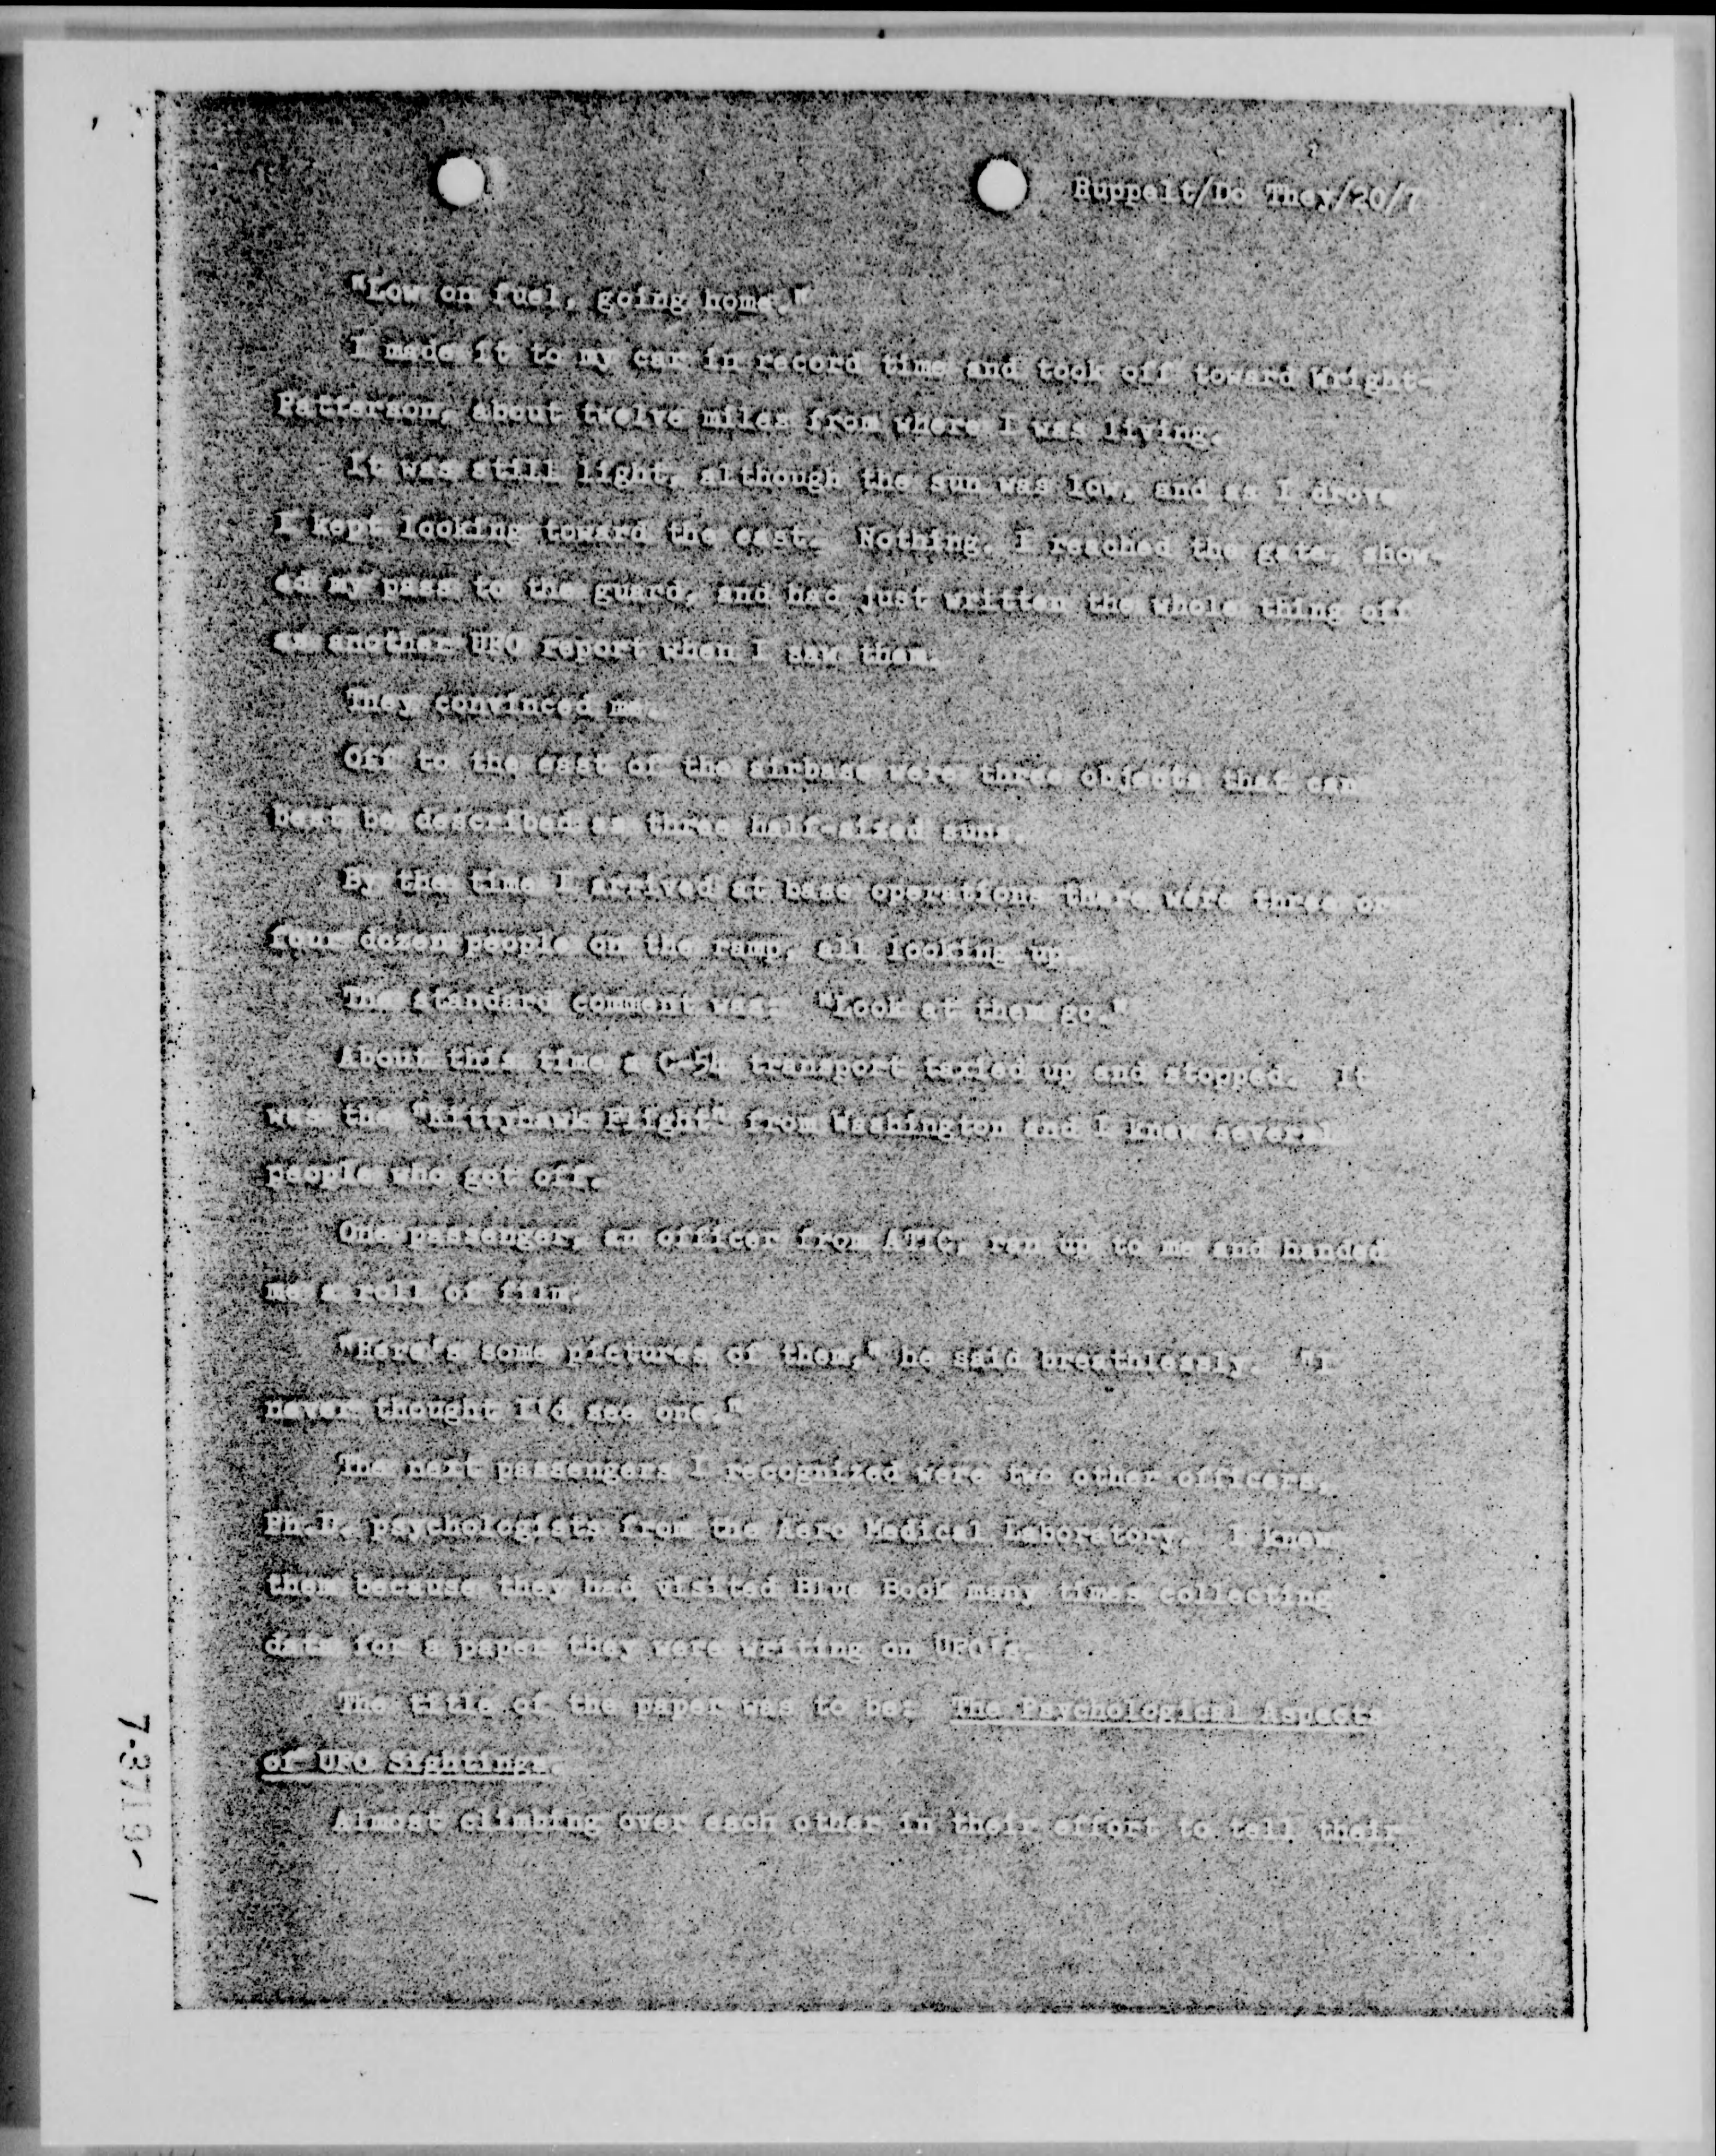 Ruppelt/Do They/20/7
"Low on fuel, going home."
I made it to my car in record time and took off toward Wright-
Patterson, about twelve miles from where I was living.
It was still light, although the sun was low, and as I drove
I kept looking toward the east. Nothing. I reached the gate, show-
ed my pass to the guard, and had just written the whole thing off
as another UFO report when I saw them.
They convinced me.
Off to the east of the airbase were three objects that can
best be described as three half-sized suns.
By the time I arrived at base operations there were three or
four dozen people on the ramp, all looking up.
The standard comment was: "Look at them go."
About this time a C-54 transport taxied up and stopped. It
was the "Kittyhawk Flight" from Washington and I knew several
people who got off.
One passenger, an officer from ATIC, ran up to me and handed
me a roll of film.
"Here's some pictures of them," he said breathlessly. "I
never thought I'd see one."
The next passengers I recognized were two other officers,
Ph.D. psychologists from the Aero Medical Laboratory. I knew
them because they had visited Blue Book many times collecting
data for a paper they were writing on UFO's.
The title of the paper was to be: The Psychological Aspects
of UFO Sightings.
Almost climbing over each other in their effort to tell their
7-3719-1